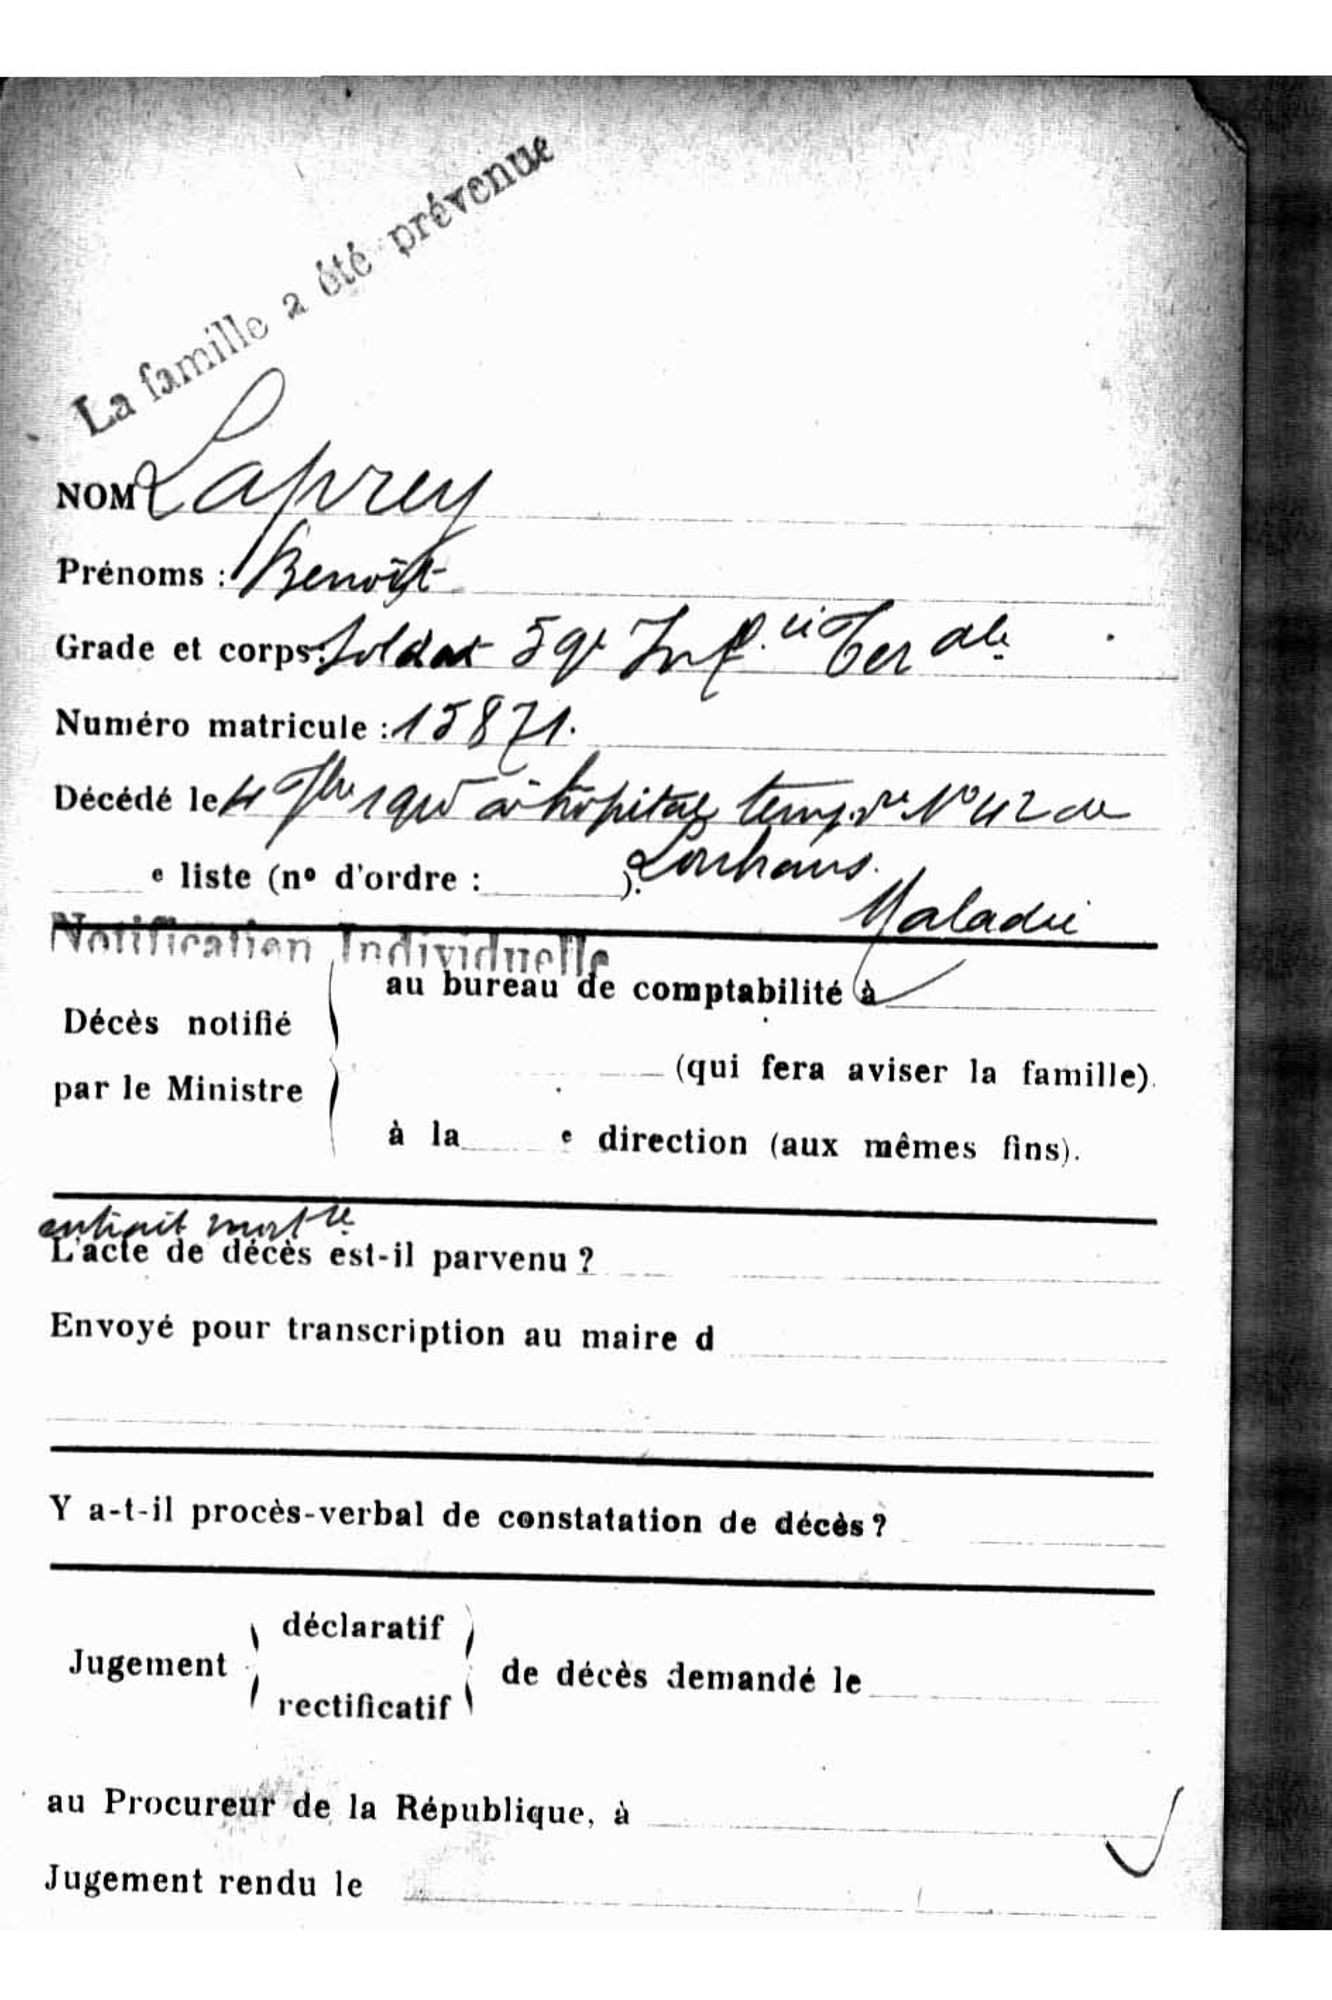 La famille a été prévenue
NOM Laprey
Prénoms : Benoît
Grade et corps: Soldat 59e Inf.ie Ter ale
Numéro matricule : 15871.
Décédé le 4 7bre 1915 à hôpital temp.re N° 42 de
e liste (nº d'ordre : ). Louhans.
Maladie
Notification Individuelle
au bureau de comptabilité à
Décès notifié
(qui fera aviser la famille).
par le Ministre
à la e direction (aux mêmes fins).
extrait mort re
L'acte de décès est-il parvenu ?
Envoyé pour transcription au maire d
Y a-t-il procès-verbal de constatation de décès ?
déclaratif
Jugement de décès demandé le
rectificatif
au Procureur de la République, à
Jugement rendu le